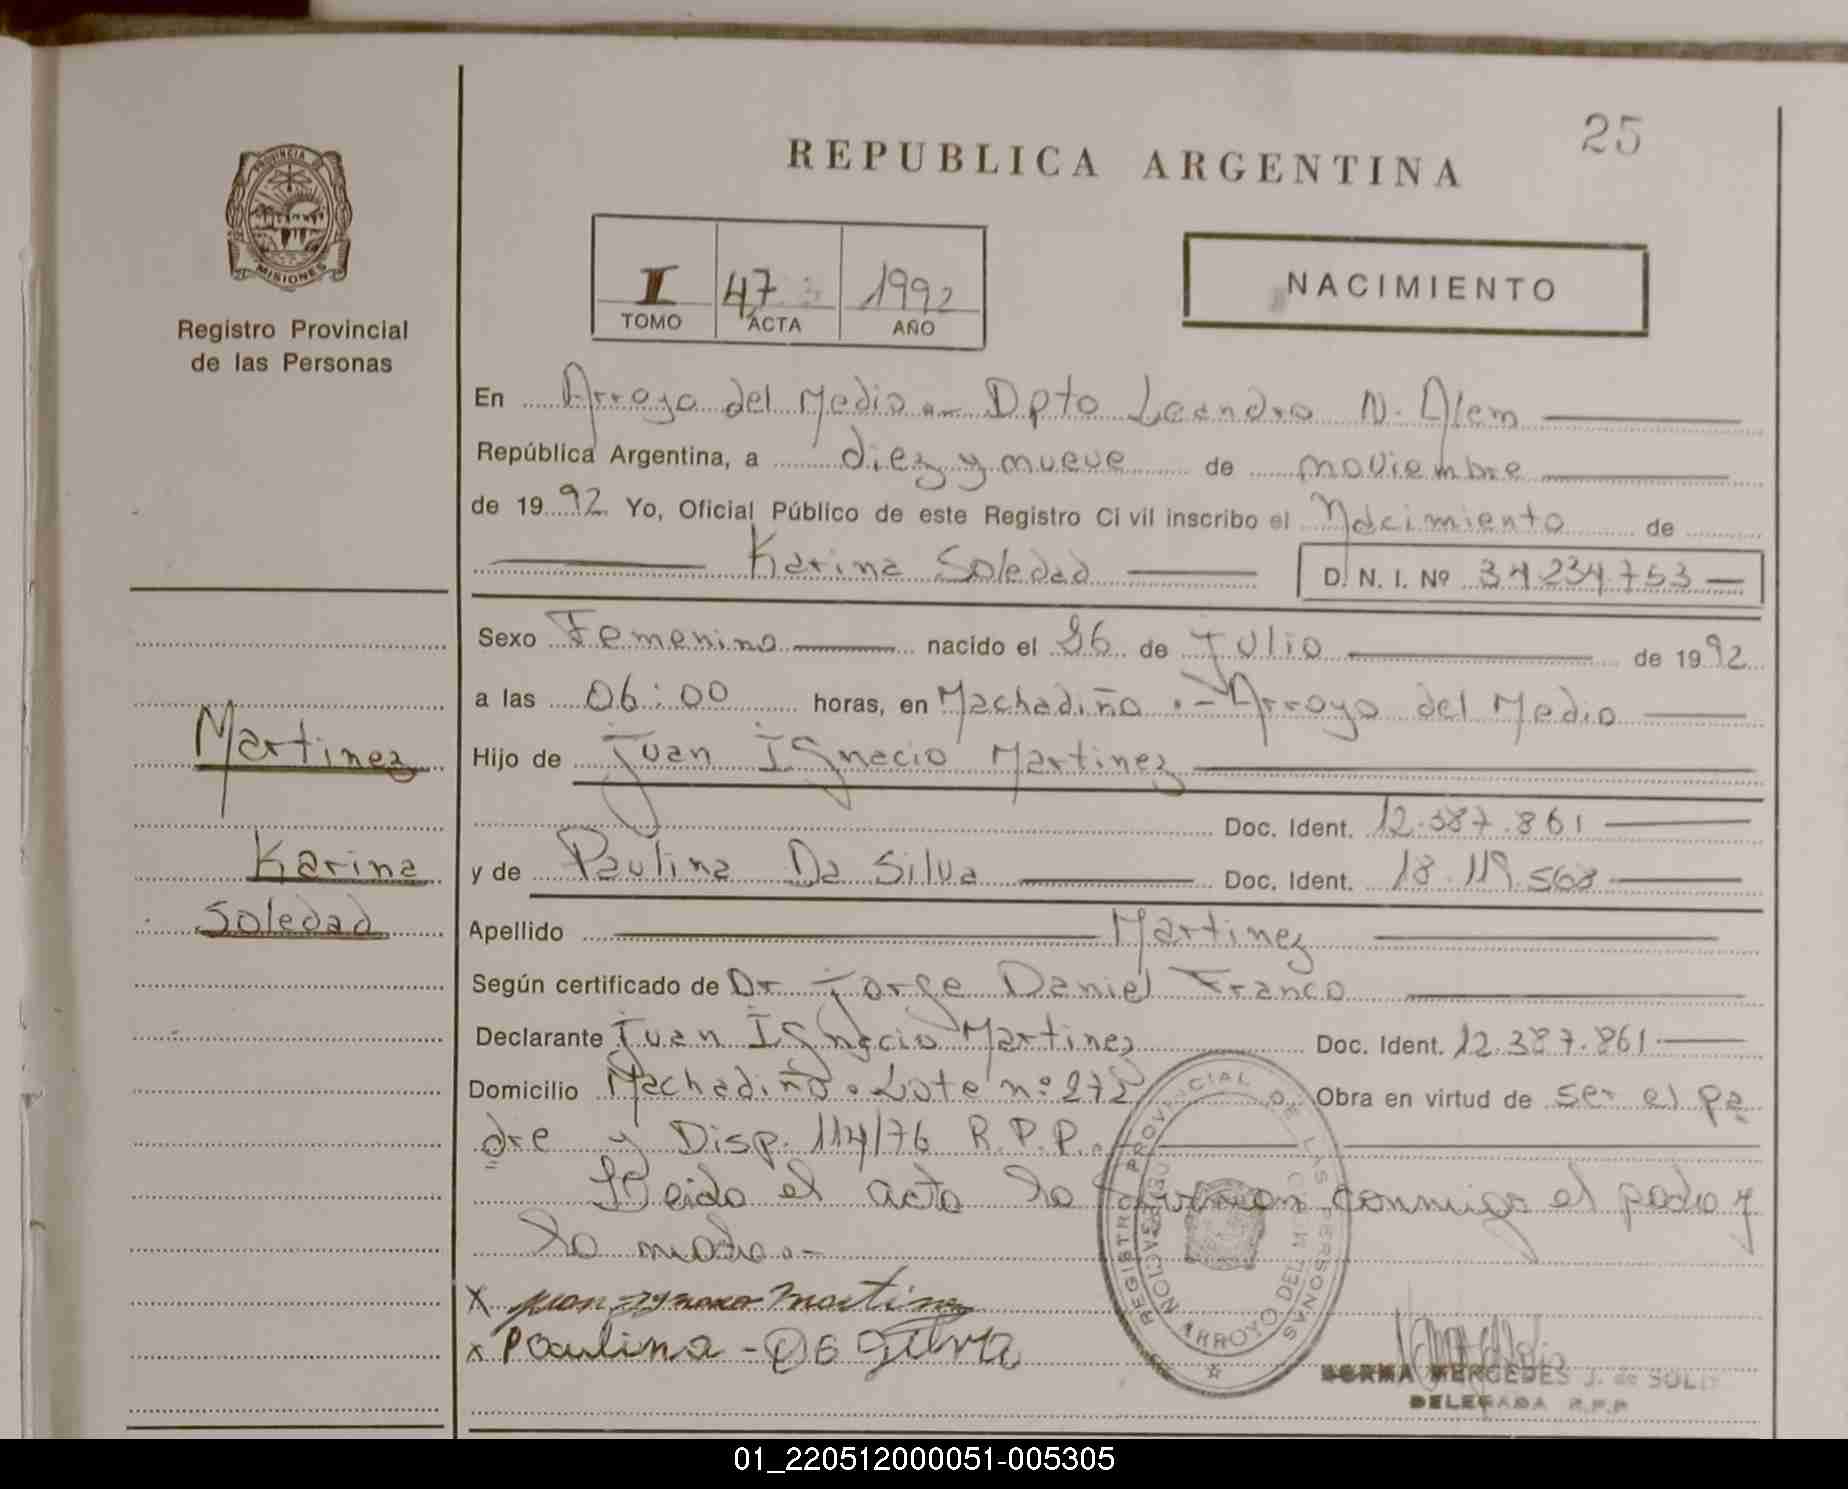 25
REPUBLICA ARGENTINA
PROVINCIA DE
MISIONES
Registro Provincial
de las Personas
I 47 1992
TOMO ACTA AÑO
NACIMIENTO
En Arroyo del Medio.- Dpto Leandro N. Alem
República Argentina, a diez y nueve de noviembre
de 1992 Yo, Oficial Público de este Registro Civil inscribo el Nacimiento de
Karina Soledad D. N. I. Nº 34.234.753
Sexo Femenino nacido el de Julio de 1992
a las 06:00 horas, en Machadiño.- Arroyo del Medio
Hijo de Juan Ignacio Martinez
Doc. Ident. 12.387.861
y de Paulina Da Silva Doc. Ident. 18.119.568
Apellido Martinez
Según certificado de Dr Jorge Daniel Franco
Declarante Juan Ignacio Martinez Doc. Ident. 12.387.861
Domicilio Machadiño. Lote nº 272 Obra en virtud de ser el pa
dre y Disp. 114/76 R.P.P.
Leida el acta la firman conmigo el padre y
la madre.-
x Juan Ygnacio Martinez
x Paulina - Da Silva
Martinez
Karina
Soledad
REGISTRO PROVINCIAL DE LAS PERSONAS
DELEGACION ARROYO DEL MEDIO
NORMA MERCEDES J. de SOLIS
DELEGADA R.P.P.
01_220512000051-005305